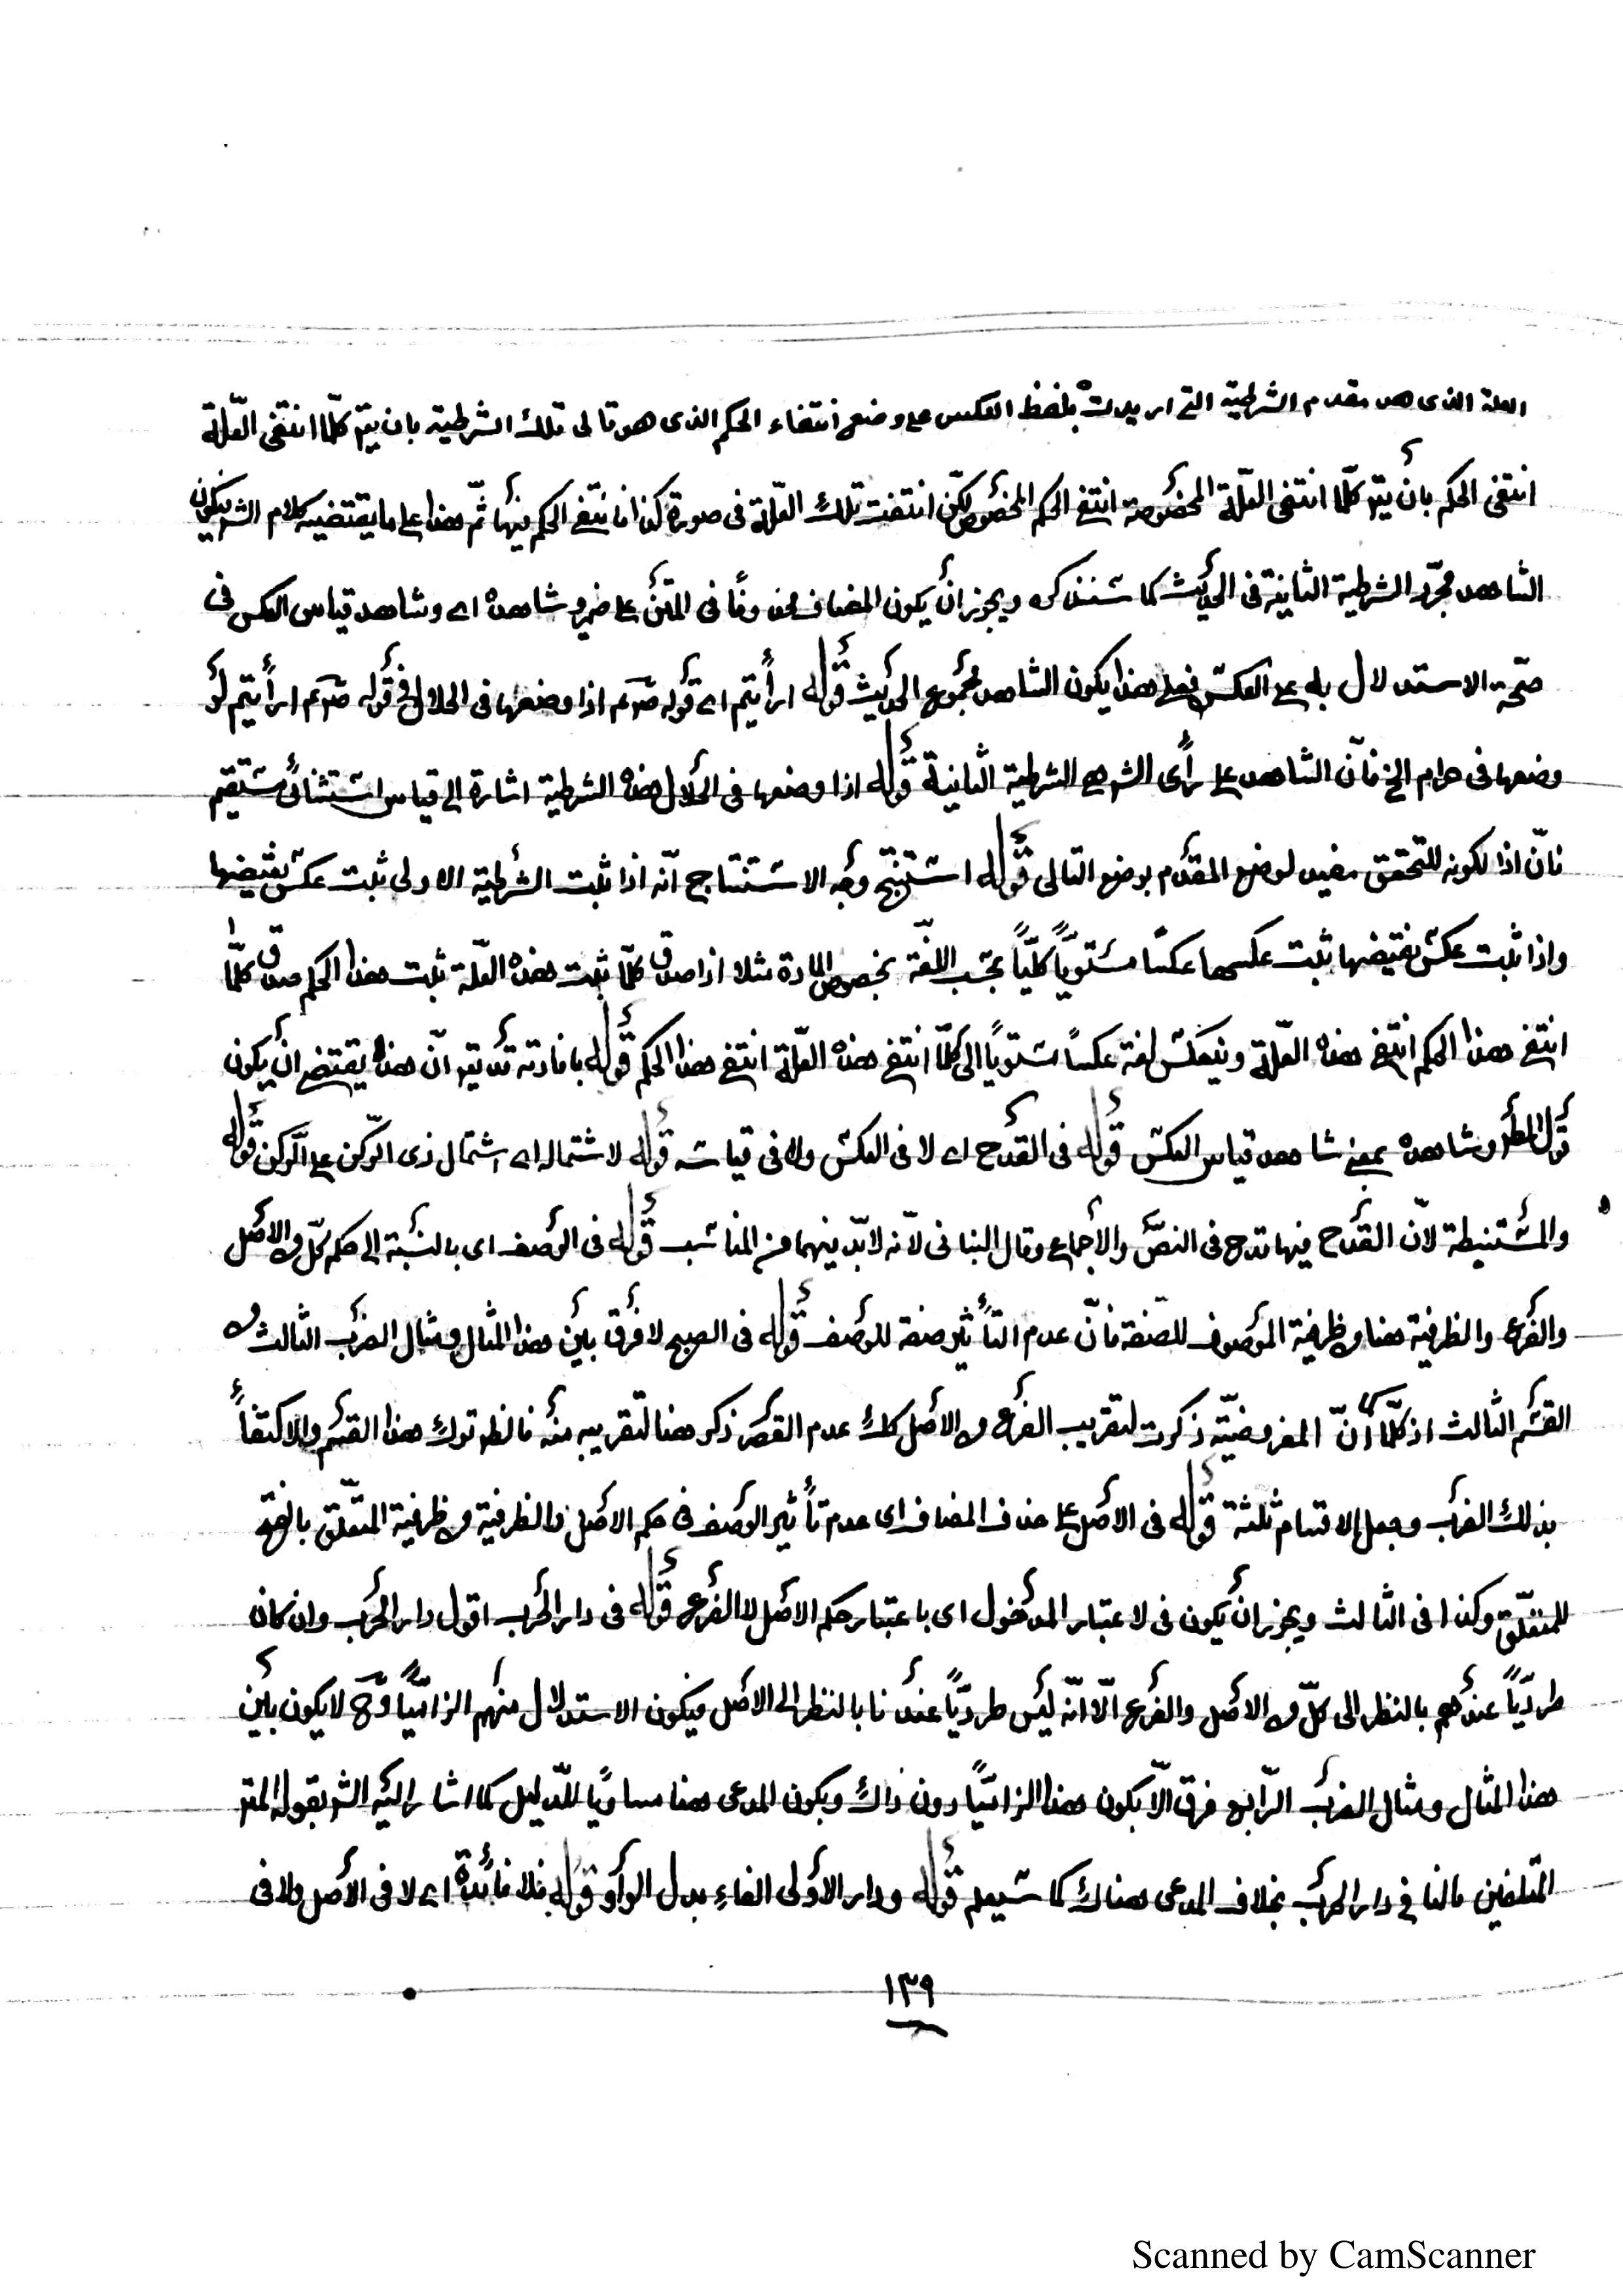 العلة الذى هو مقدم الشرطية التے اريدت بلفظ العكس ع وضع انتفاء الحكم الذى هو تالى تلك الشرطية بان يقر كلّما انتفى العلّة
انتفى الحكم بان يقر كلّما انتفى العلّة المخصوصة انتفے الحكم المخصوص لكن انتفت تلك العلّة فى صورة كذا فانتفے الحكم فيها ثمّ هذا على ما يقتضيه كلام الشر فيكون
الشاهد مجرّد الشرطية الثانية فى الحديث كما سنذكره ويجوز ان يكون المضاف محذوفًا فى المتن على ضمير شاهده اى وشاهد قياس العكس فى
صحّة الاستدلال به ع العكس فعلے هذا يكون الشاهد مجموع الحديث قوله ارأيتم اے قوله صوعم اذا وضعها فى الحلال فى قوله صوعم ارأيتم لو
وضعها فى حرام الخ فانّ الشاهد على رأى الشر هى الشرطية الثانية قوله اذا وضعها فى الحلال هذه الشرطية اشارة الى قياس استثنائى مستقيم
فانّ اذا لكونه للتحقق مفيد لوضع المقدم بوضع التالى قوله استنتج وجه الاستنتاج انّه اذا ثبت الشرطية الاولى ثبت عكس نقيضها
واذا ثبت عكس نقيضها ثبت عكسها عكسًا مستويًّا كليًّا بحسب اللغة بخصوص المادة مثلا اذا صدق كلّما ثبت هذه العلّة ثبت هذا الحكم صدق كلّما
انتفے هذا الحكم انتفے هذه العلّة وينعكس لغة عكسًا مستويًا الى كلّما انتفے هذه العلّة انتفے هذا الحكم قوله بافادته قد يقر انّ هذا يقتضے ان يكون
قول المط وشاهده بمعنے شاهد قياس العكس قوله فى القدح اے لا فى العكس ولا فى قياسه قوله لاشتماله اے اشتمال ذى الرّكن على الرّكن قوله
والمستنبطة لانّ القدح فيها قدح فى النصّ والاجماع وقال البنانى لانّه لا بدّ فيهما من المناسب قوله فى الوصف اى بالنسبة الى حكم كلّ من الاصل
والفرع والظرفية هنا من ظرفية الموصوف للصّفة فانّ عدم التأثير صفة للوصف قوله فى الصبح لا فرق بين هذا المثال ومثال الضرب الثالث من
القسم الثالث اذ كلّما انّ المفروضيّة ذكرت لتقريب الفرع من الاصل كك عدم القصر ذكر هنا لتقريبه منه فالظر ترك هذا القسم والاكتفأ
بذلك الضرب وجعل الاقسام ثلثة قوله فى الاصل على حذف المضاف اى عدم تأثير الوصف فى حكم الاصل فالظرفية من ظرفية المتعلّق بالفتح
للمتعلّق وكذا فى الثالث ويجوز ان يكون فى لاعتبار المدخول اى باعتبار حكم الاصل لا الفرع قوله فى دار الحرب اقول دار الحرب وان كان
طرديًّا عندهم بالنظر الى كلّ من الاصل والفرع الّا انّه ليس طرديًّا عندنا بالنظر الى الاصل فيكون الاستدلال منهم الزاميًّا وح لا يكون بين
هذا المثال ومثال الضرب الرّابع فرق الّا بكون هذا الزاميًّا دون ذاك وبكون المدعى هنا مساويًا للدّليل كما اشار اليه الشر بقوله المتر
المتلفين مالنا فى دار الحرب بخلاف المدعى هناك كما سيعلم قوله ودار الاولى الفاء بدل الواو قوله فلا فائدة اے لا فى الاصل ولا فى
١٣٩
Scanned by CamScanner